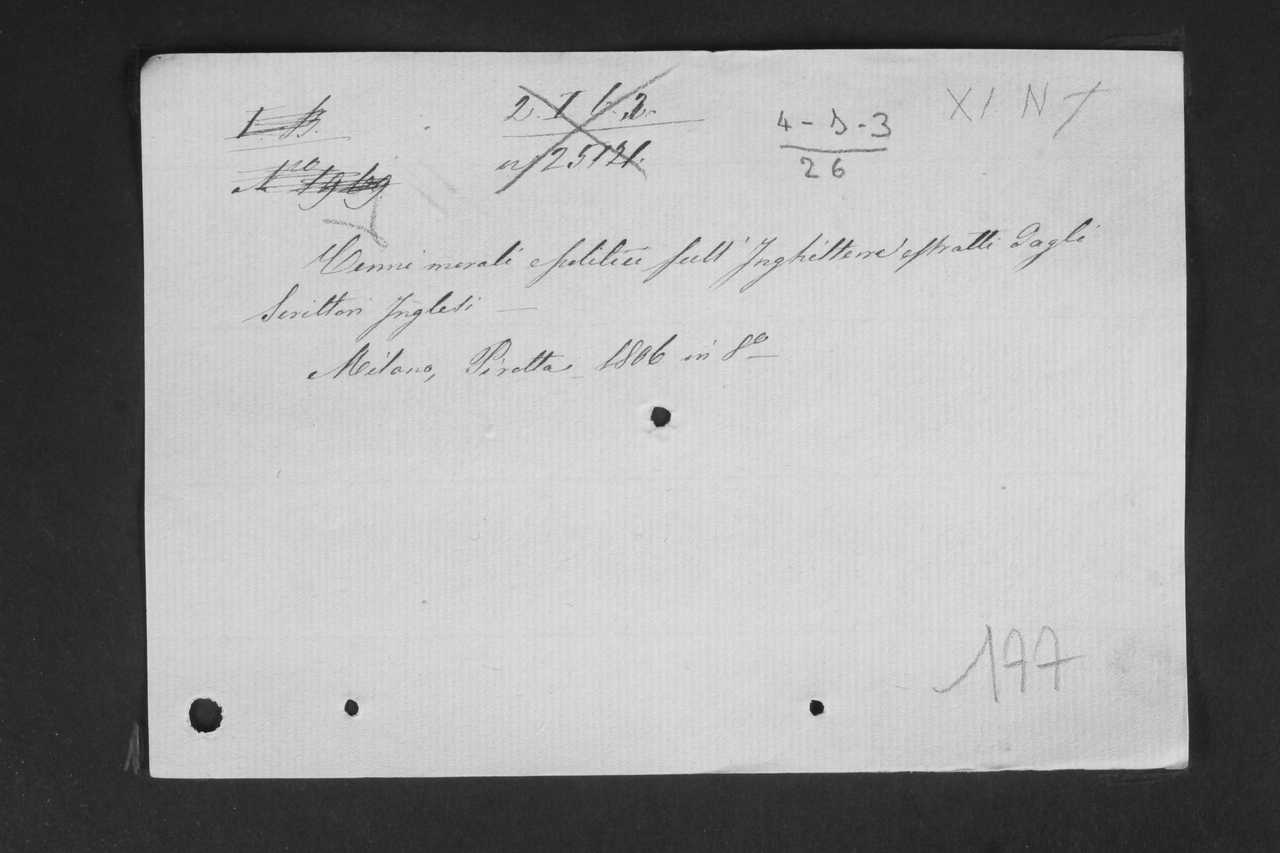 I. B. 2. I. 6. 2. 4 - D - 3 XI N
N.ro n/ 25121. 26
Cenni morali e politici sull' Inghilterra estratti dagli
Scrittori Inglesi —
Milano, Pirotta 1806 in 8°
177